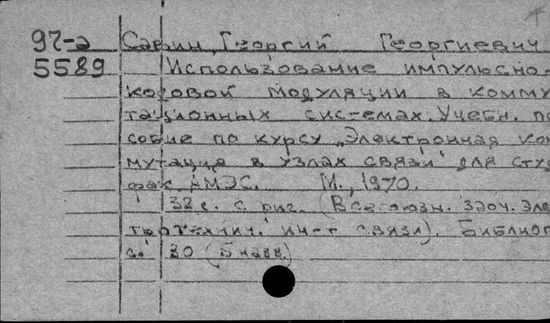 97-2 Савин, Георгий Георгиевич
5589 Использование импульсно-
кодовой модуляции в комму
тационных системах. Учебн. по
собие по курсу „Электронная ком
мутация в узлах связи" для студ
фак. АМЭС. М., 1970.
32 с. с рис. (Всесоюзн. заоч. эле
тротехнич. ин-т связи). Библиог
с. 30 (5 назв.)